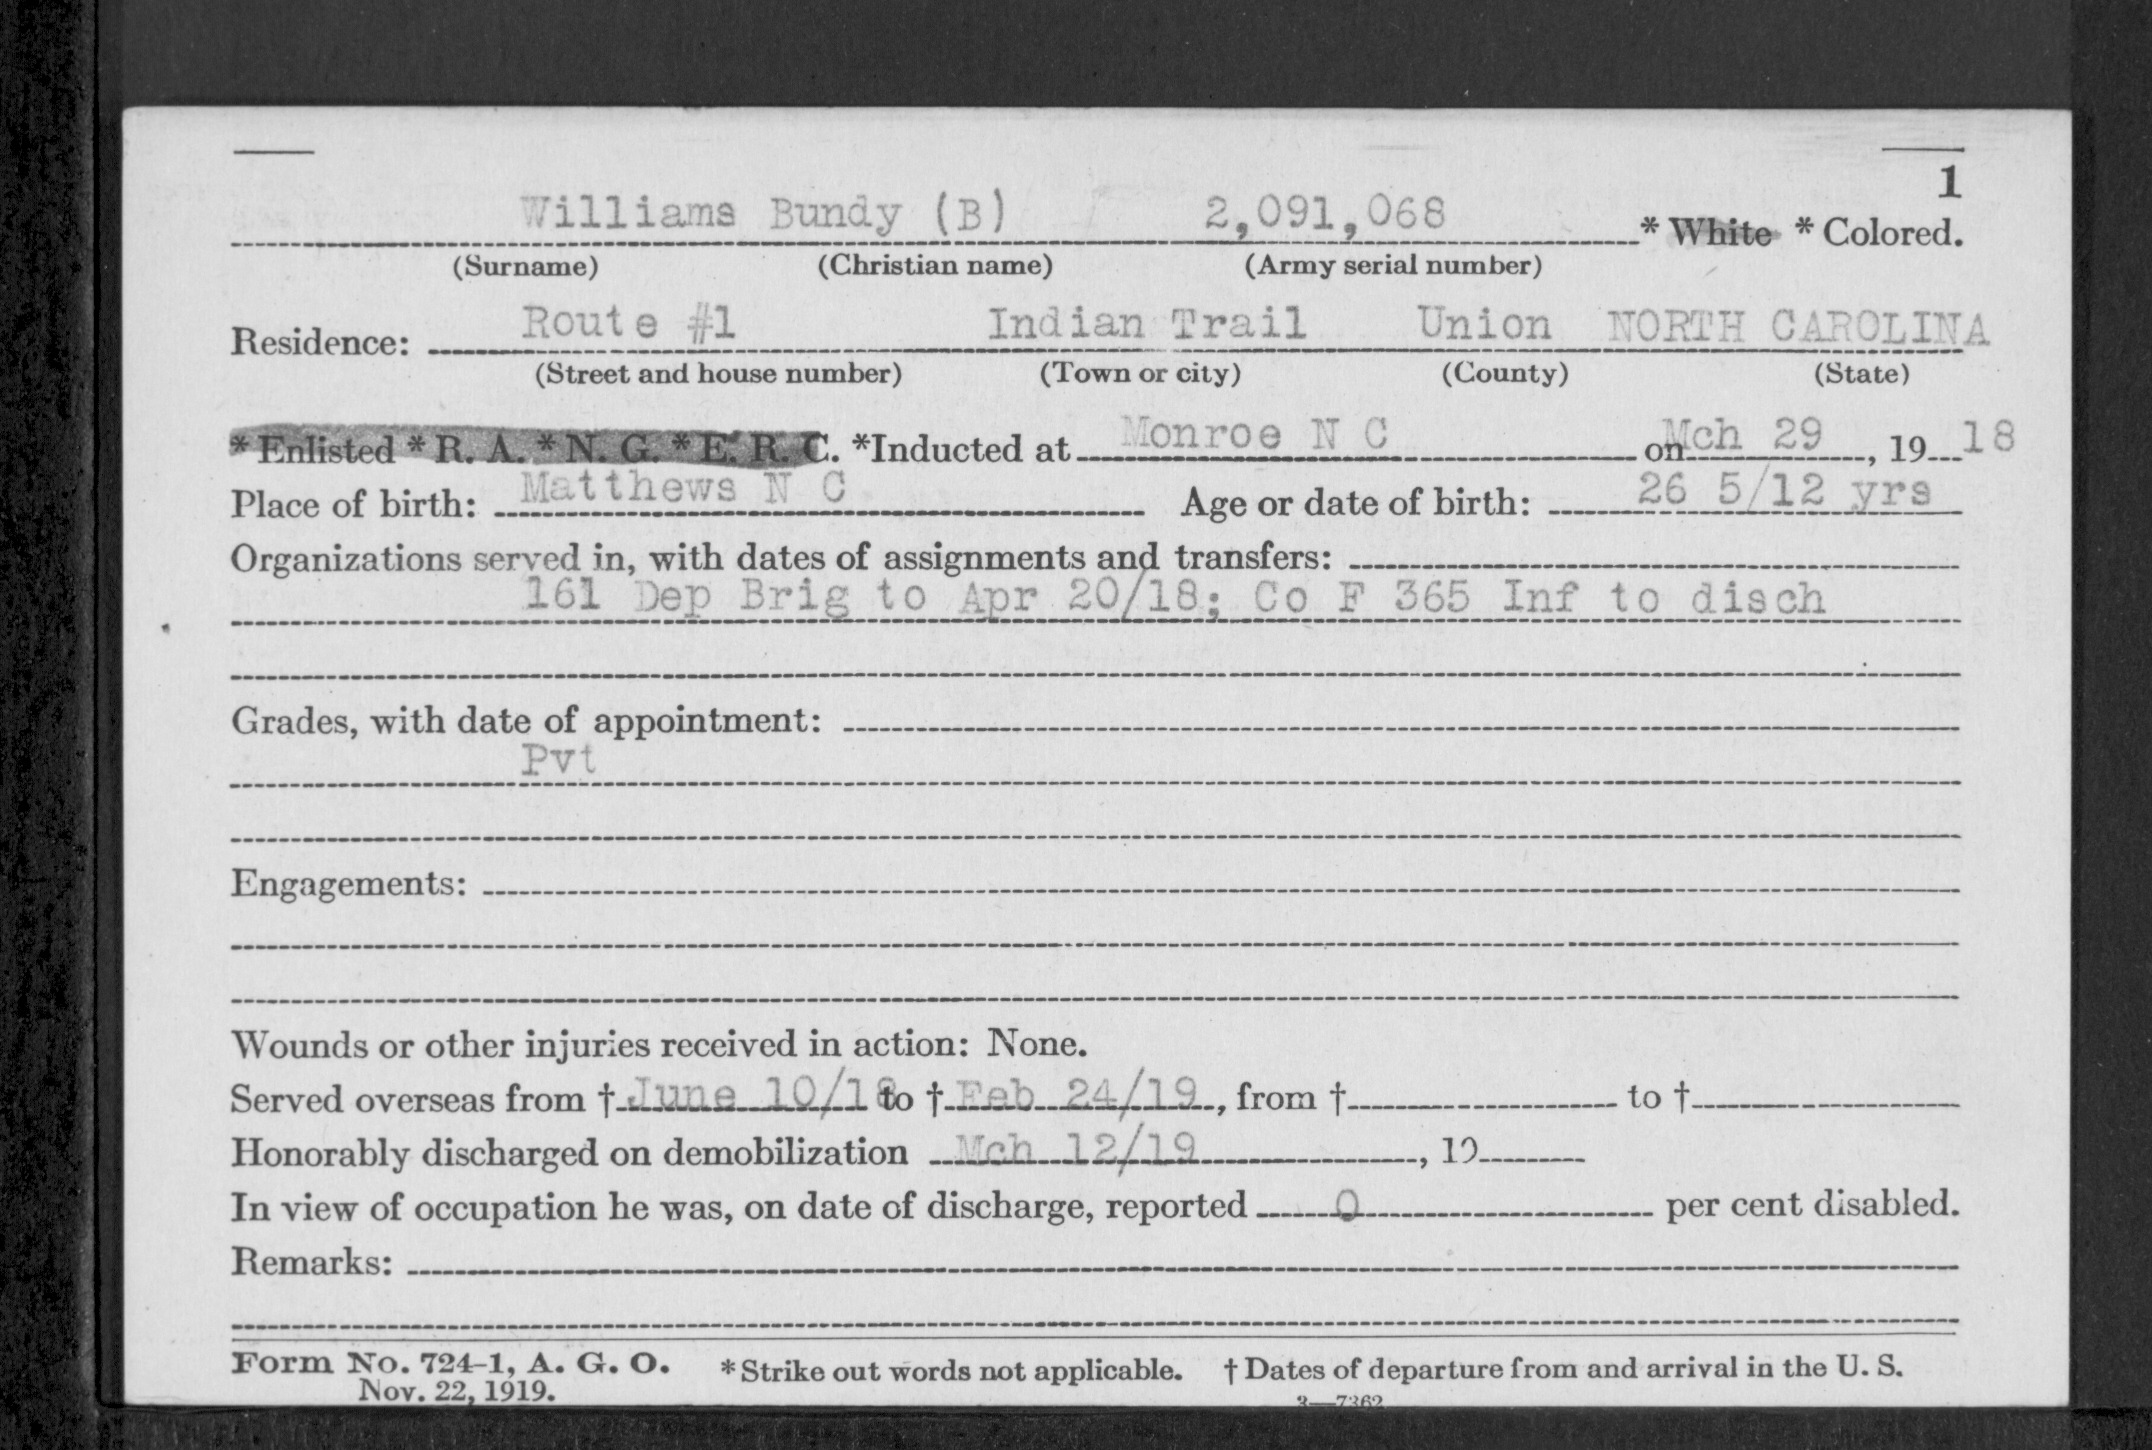 1
Williams Bundy (B) 2,091,068 * White * Colored.
(Surname) (Christian name) (Army serial number)
Residence: Route #1 Indian Trail Union NORTH CAROLINA
(Street and house number) (Town or city) (County) (State)
* Enlisted * R. A. * N. G. * E. R. C. *Inducted at Monroe N C on Mch 29, 1918
Place of birth: Matthews N C Age or date of birth: 26 5/12 yrs
Organizations served in, with dates of assignments and transfers:
161 Dep Brig to Apr 20/18; Co F 365 Inf to disch
Grades, with date of appointment:
Pvt
Engagements:
Wounds or other injuries received in action: None.
Served overseas from † June 10/18 to † Feb 24/19, from † to †
Honorably discharged on demobilization Mch 12/19, 19
In view of occupation he was, on date of discharge, reported 0 per cent disabled.
Remarks:
Form No. 724-1, A. G. O. * Strike out words not applicable. † Dates of departure from and arrival in the U. S.
Nov. 22, 1919. 3—7362